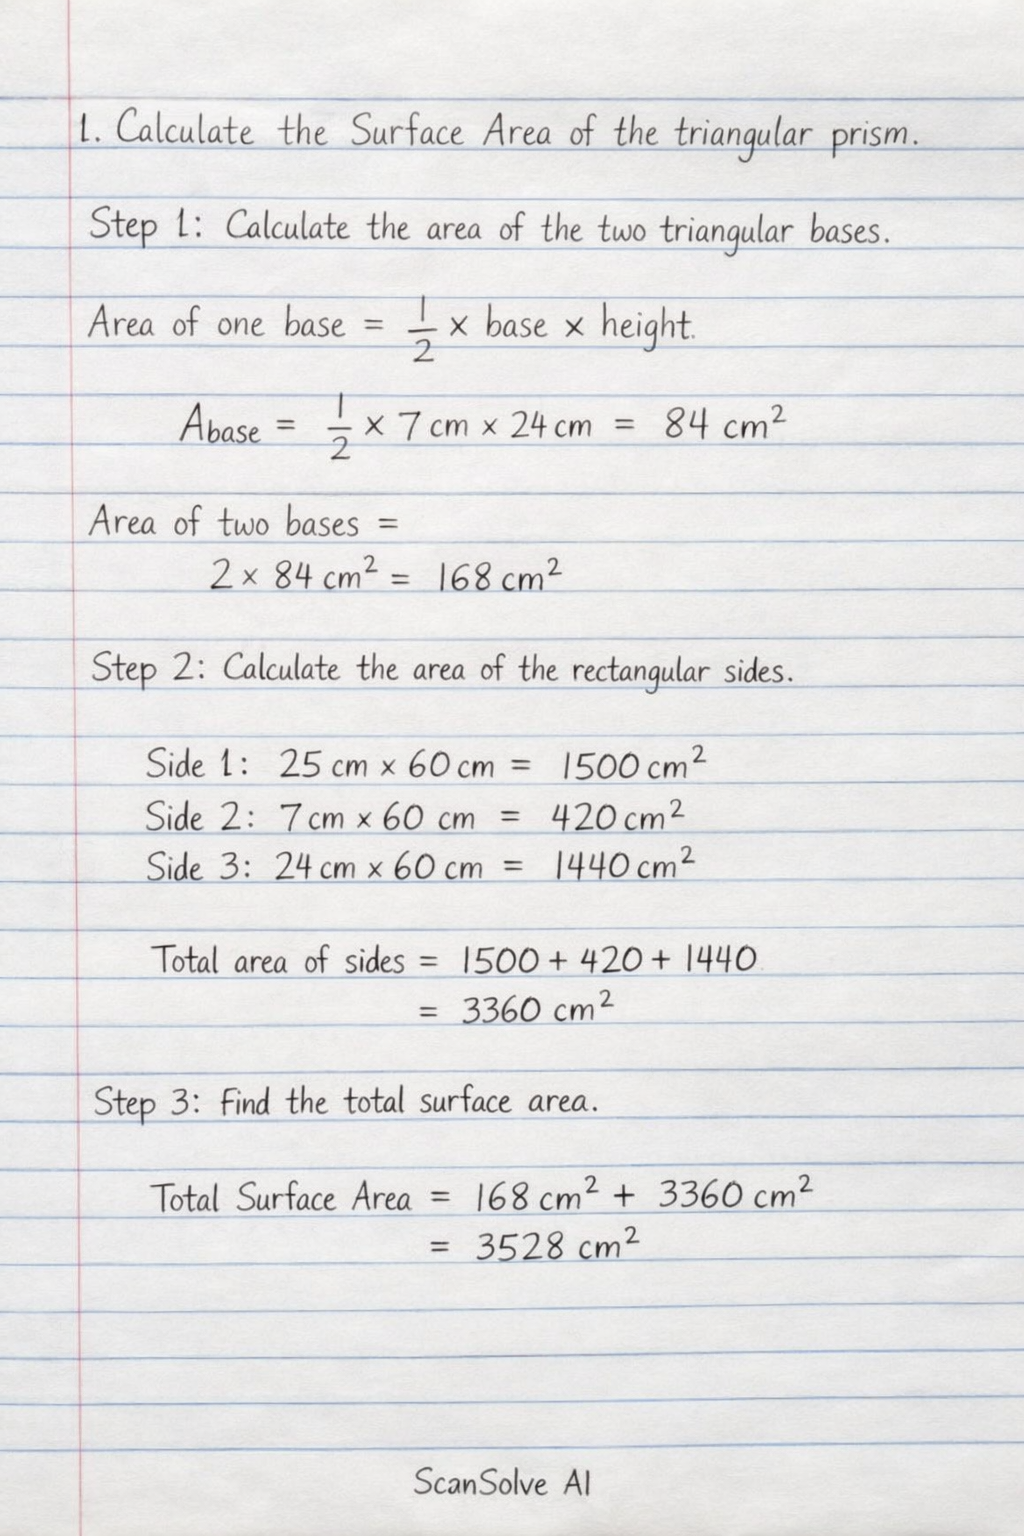 1. Calculate the Surface Area of the triangular prism.
Step 1: Calculate the area of the two triangular bases.
Area of one base = 1/2 × base × height.
Abase = 1/2 × 7 cm × 24 cm = 84 cm²
Area of two bases =
2 × 84 cm² = 168 cm²
Step 2: Calculate the area of the rectangular sides.
Side 1: 25 cm × 60 cm = 1500 cm²
Side 2: 7 cm × 60 cm = 420 cm²
Side 3: 24 cm × 60 cm = 1440 cm²
Total area of sides = 1500 + 420 + 1440
= 3360 cm²
Step 3: Find the total surface area.
Total Surface Area = 168 cm² + 3360 cm²
= 3528 cm²
ScanSolve AI